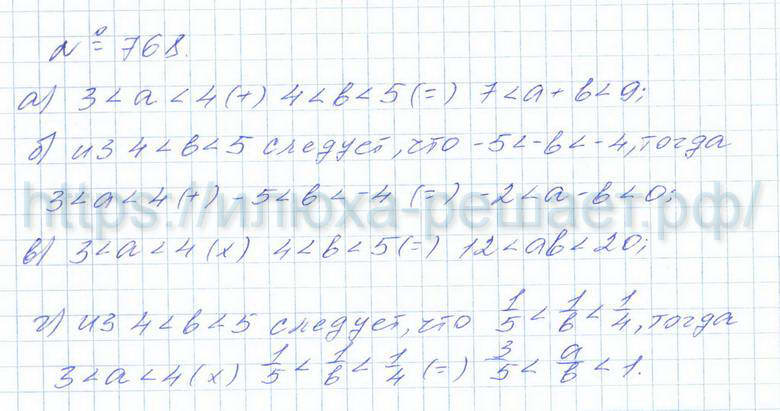 № 768.
а) 3 < a < 4 (+) 4 < b < 5 (=) 7 < a + b < 9;
б) из 4 < b < 5 следует, что -5 < -b < -4, тогда
3 < a < 4 (+) -5 < b < -4 (=) -2 < a - b < 0;
https://илюха-решает.рф/
в) 3 < a < 4 (x) 4 < b < 5 (=) 12 < ab < 20;
г) из 4 < b < 5 следует, что 1/5 < 1/b < 1/4, тогда
3 < a < 4 (x) 1/5 < 1/b < 1/4 (=) 3/5 < a/b < 1.